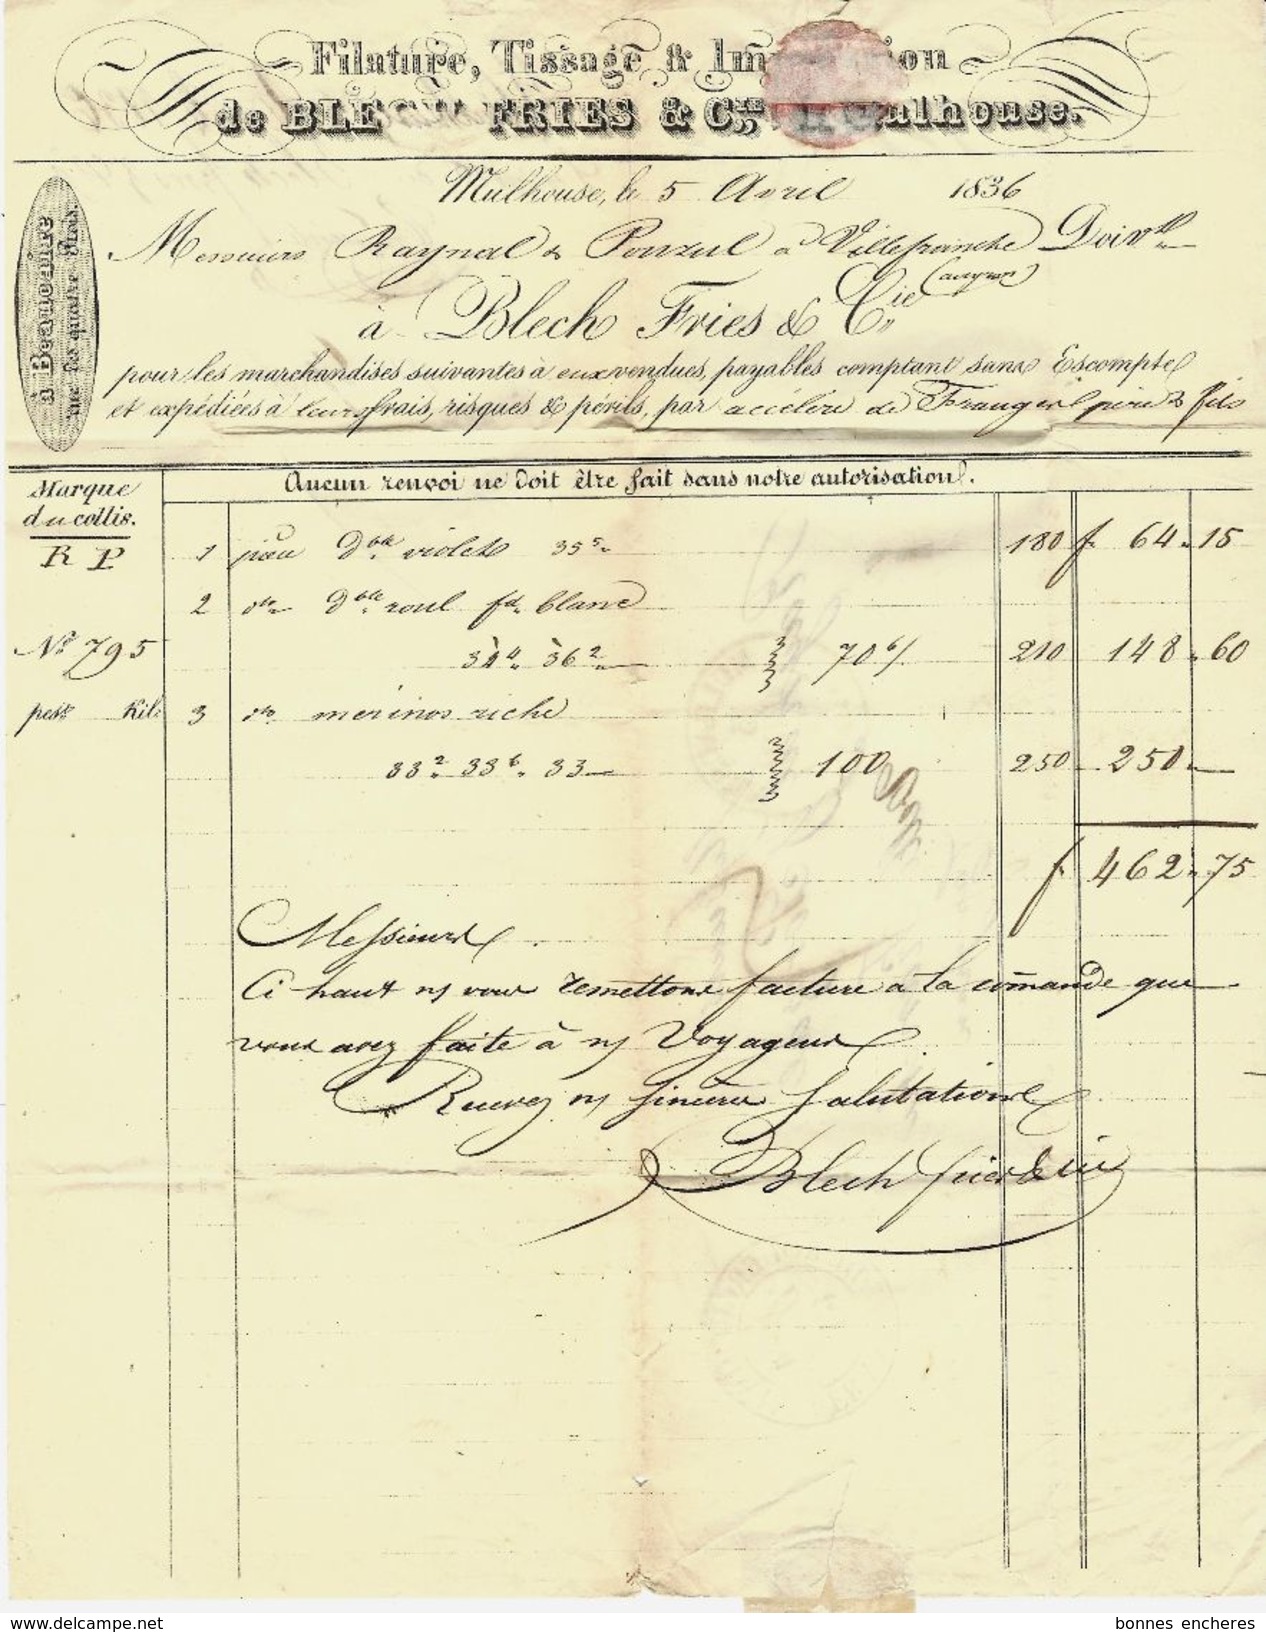 Filature, Tissage & Im ion
de BLECH FRIES & Cie Mulhouse.
Mulhouse, le 5 Avril 1836
à Beaucaire
rue des quatre Rois.
Messieurs Raynal & Pouzul à Villefranche Doivt
(aveyron)
à Blech Fries & Cie
pour les marchandises suivantes à eux vendues, payables comptant sans Escompte
et expédiées à leurs frais, risques & périls, par accéléré de Franger père & fils
Marque
du collis.
Aucun renvoi ne doit être fait sans notre autorisation.
R P
1 pièce dble violet 35 5 180 f 64 15
2 do dble roul fd blanc
No 795
34 4 à 36 2 70 6/ 210 148 60
pest Kil.
3 do mérinos riche
33 2 33 6 33 100 250 250 —
f 462 75
Messieurs
Ci haut ns vous remettons facture à la commande que
vous avez faite à ns Voyageur
Recevez ns sincères salutations
Blech fries & cie
bonnes encheres